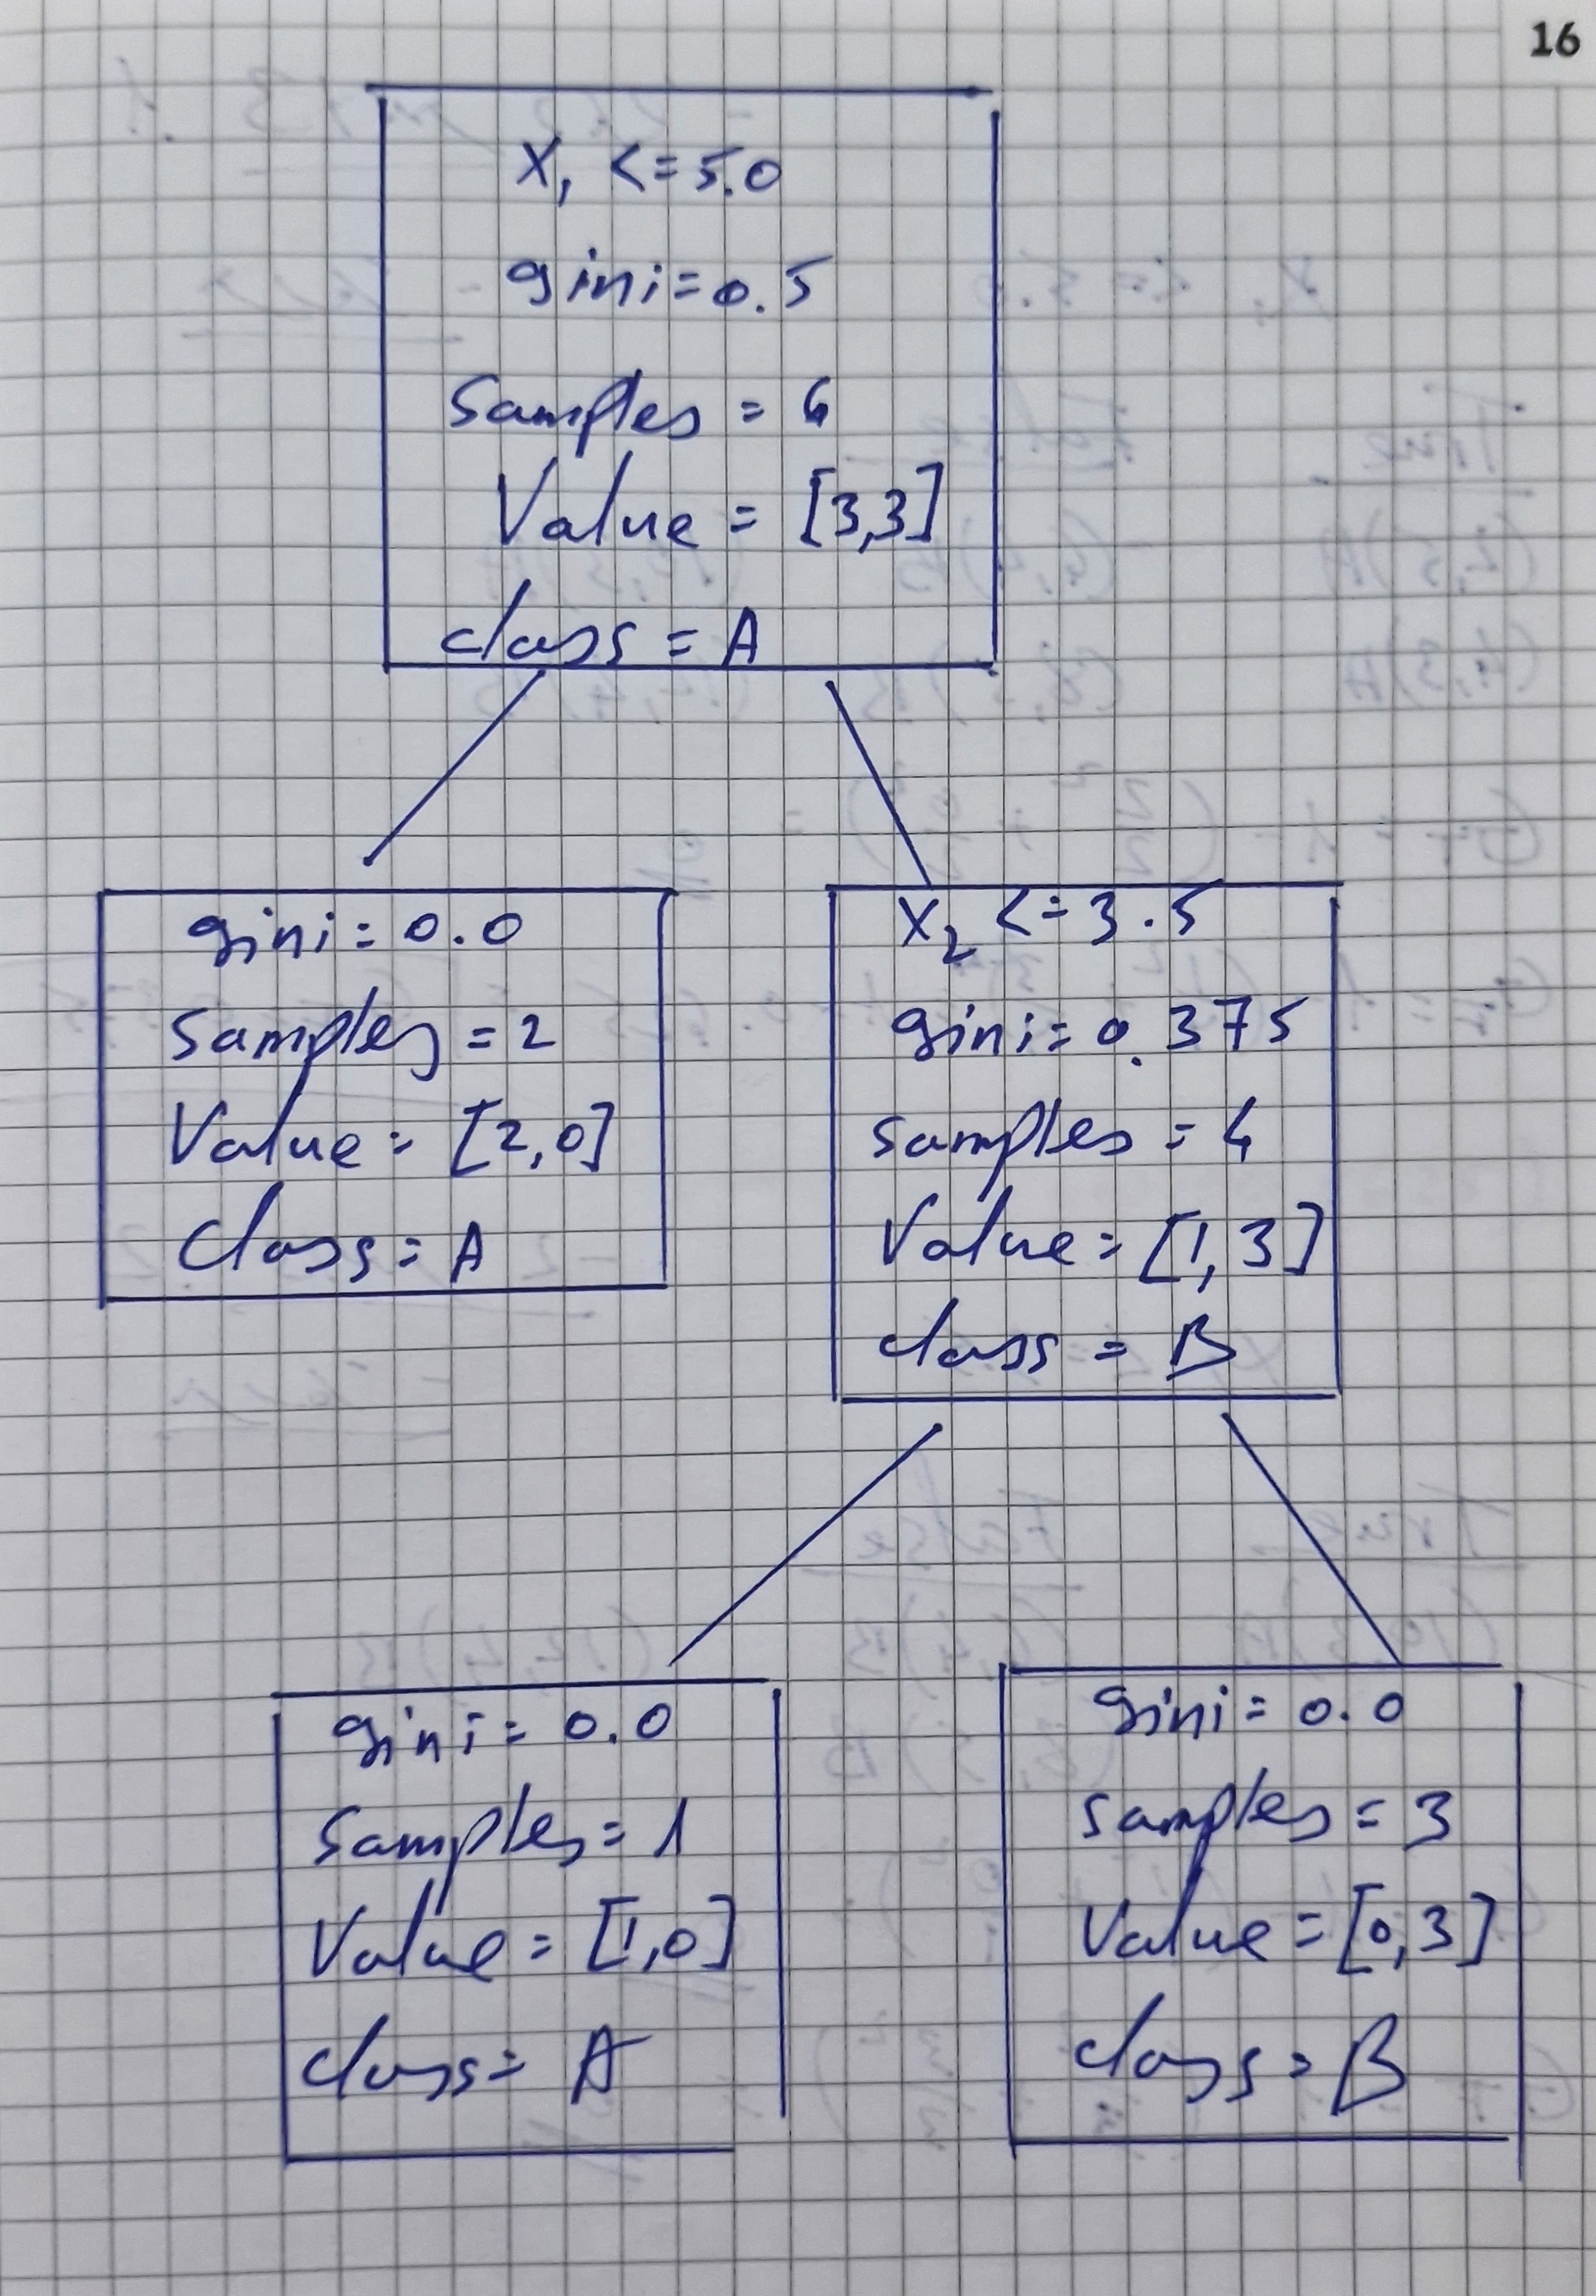 16
X₁ <= 5.0
gini = 0.5
Samples = 6
Value = [3,3]
class = A
gini = 0.0
Samples = 2
Value = [2,0]
Class = A
X₂ <= 3.5
gini = 0.375
samples = 4
Value = [1,3]
class = B
gini = 0.0
Samples = 1
Value = [1,0]
class = A
gini = 0.0
samples = 3
Value = [0,3]
class = B